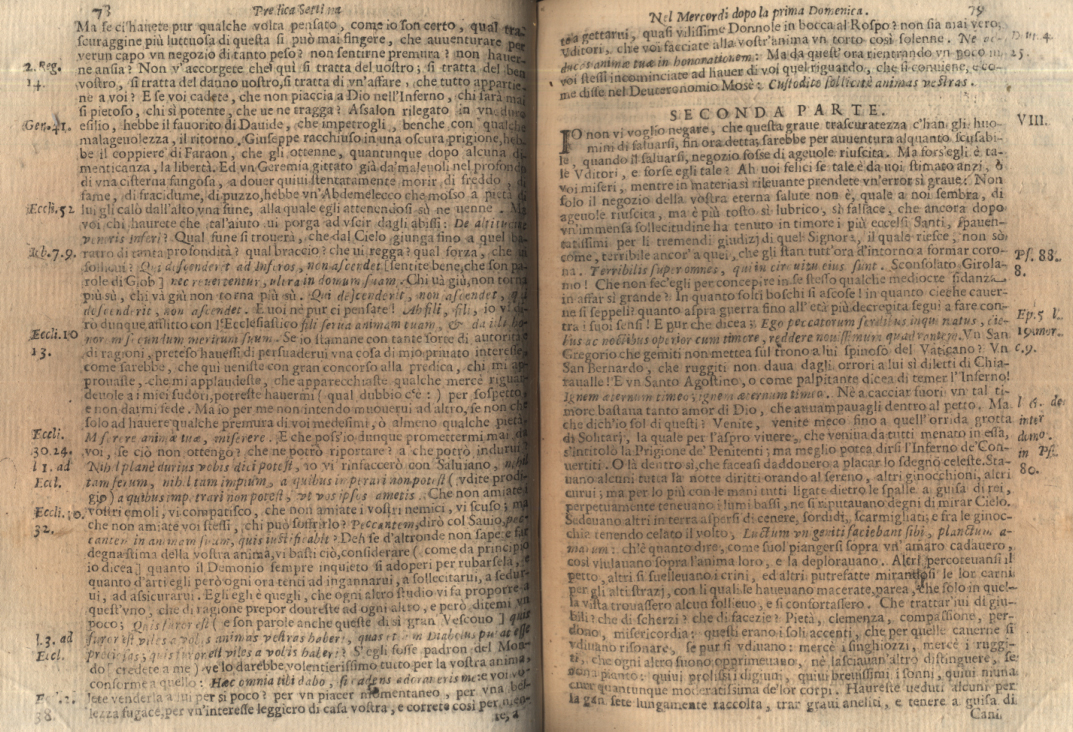 78 Predica Settima
Ma se ci hauete pur qualche volta pensato, come io son certo, qual tra-
scuraggine più luttuosa di questa si può mai fingere, che auuenturare per
verun capo vn negozio di tanto peso? non sentirne premura? non hauer-
2. Reg. ne ansia? Non v'accorgete che qui si tratta del vostro; si tratta del ben
14. vostro, si tratta del danno uostro, si tratta di vn'affare, che tutto appartie-
ne a voi? E se voi cadete, che non piaccia a Dio nell'Inferno, chi sarà mai
si pietoso, chi sì potente, che ue ne tragga? Assalon rilegato in vn duro
Gen. 41. esilio, hebbe il fauorito di Dauide, che impetrogli, benche con qualche
malageuolezza, il ritorno. Giuseppe racchiuso in una oscura prigione, heb-
be il coppiere di Faraon, che gli ottenne, quantunque dopo alcuna di-
menticanza, la libertà. Ed vn Geremia gittato già da'maleuoli nel profondo
di vna cisterna fangosa, a douer quiui stentatamente morir di freddo, di
fame, di fracidume, di puzzo, hebbe vn'Abdemelecco che mosso a pietà di
Eccli. 51 lui gli calò dall'alto vna fune, alla quale egli attenendosi sù ne uenne. Ma
voi chi haurete che tal'aiuto ui porga ad vscir dagli abissi: De altitudine
ventris inferi? Qual fune si trouerà, che dal Cielo giunga fino a quel ba-
Iob. 7. 9. ratro di tanta profondità? qual braccio? che ui regga? qual forza, che ui
solleui? Qui descenderit ad Inferos, non ascendet [sentite bene, che son pa-
role di Giob] nec reuertetur, ultra in domum suam. Chi uà giù, non torna
più sù, chi và giù non torna più sù. Qui descenderit, non ascendet, qui
descenderit, non ascendet. E uoi nè pur ci pensate! Ah fili, fili, io vi di-
Eccli. 10 rò dunque afflitto con l'Ecclesiastico fili serua animam tuam, & da illi ho-
13. norem secundum meritum suum. Se io stamane con tante sorte di autorità e
di ragioni, preteso hauessi di persuaderui vna cosa di mio priuato interesse,
come sarebbe, che qui ueniste con gran concorso alla predica, chi mi ap-
prouaste, che mi applaudeste, che apparecchiaste qualche mercè riguar-
deuole a i miei sudori, potreste hauermi (qual dubbio c'è:) per sospetto,
e non darmi fede. Ma io per me non intendo muouerui ad altro, se non che
solo ad hauere qualche premura di voi medesimi, ò almeno qualche pietà.
Eccli. Miserere animæ tuæ, miserere. E che poss'io dunque promettermi mai da
30. 24. voi, se ciò non ottengo? che ne potrò riportare? a che potrò indurui?
l 1. ad Nihil planè durius vobis dici potest, io vi rinfaccerò con Saluiano, nihil
Eccl. tam ferum, nihil tam impium, a quibus imperari non potest (vdite prodi-
gio) a quibus impetrari non potest, vt vos ipsos ametis. Che non amiate i
Eccli. 10. vostri emoli, vi compatisco, che non amiate i vostri nemici, vi scuso; ma
32. che non amiate voi stessi, chi può soffrirlo? Peccantem, dirò col Sauio, pec-
cantem in animam suam, quis iustificabit? Deh se d'altronde non sape e far
degna stima della vostra anima, vi basti ciò, considerare (come da principio
io dicea] quanto il Demonio sempre inquieto si adoperi per rubarsela, e
quanto d'arti egli però ogni ora tenti ad ingannarui, a sollecitarui, a sedur-
ui, ad assicurarui. Egli egli è quegli, che ogni altro studio vi fa proporre a
quest'vno, che di ragione prepor doureste ad ogni altro, e però ditemi vn
poco; Quis furor est (e son parole anche queste di sì gran Vescouo] quis
l. 3. ad furor est viles a vobis animas vestras haberi, quas etiam Diabolus putat esse
Eccl. preciosas; quis furor est viles a vobis haberi? S'egli fosse padron del Mon-
do [credete a me) ve lo darebbe volentierissimo tutto per la vostra anima,
conforme a quello: Hæc omnia tibi dabo, si cadens adoraueris me: e voi vo-
lete venderla a lui per sì poco? per vn piacer momentaneo, per vna bel-
38. lezza fugace, per vn'interesse leggiero di casa vostra, e correte così per
Nel Mercordì dopo la prima Domenica. 79
a gettarui, quasi vilissime Donnole in bocca al Rospo? non sia mai vero,
Vditori, che voi facciate alla vost'anima vn torto così solenne. Ne Deut. 4.
ducas animæ tuæ in honorationem: Ma da quest'ora rientrando vn poco in 25.
voi stessi incominciate ad hauer di voi quel riguardo, che si conuiene, e co-
me disse nel Deuteronomio Mosè: Custodite sollicitè animas vestras.
SECONDA PARTE.
VIII.
IO non vi voglio negare, che questa graue trascuratezza c'han gli huo-
mini di saluarsi, fin ora detta, sarebbe per auuentura alquanto scusabi-
le, quando il saluarsi, negozio fosse di ageuole riuscita. Ma fors'egli è ta-
le Vditori, e forse egli tale? Ah uoi felici se tale è da uoi stimato anzi, ò
voi miseri, mentre in materia sì rileuante prendete vn'error sì graue. Non
solo il negozio della vostra eterna salute non è, quale a noi sembra, di
ageuole riuscita, ma è più tosto sì lubrico, sì fallace, che ancora dopo
vn'immensa sollecitudine ha tenuto in timore i più eccelsi Santi, spauen-
tatissimi per li tremendi giudizi di quel Signore, il quale riesce, non sò
come, terribile ancor'a quei, che gli stan tutt'ora d'intorno a formar coro- Ps. 88.
na. Terribilis super omnes, qui in circuitu eius sunt. Sconsolato Girola- 8.
mo! Che non fec'egli per concepire in se stesso qualche mediocre fidanza
in affar sì grande? In quanto folci boschi si ascose! in quanto cieche cauer-
ne si seppelì! quanto aspra guerra fino all'età più decrepita segui a fare con-
tra i suoi sensi! E pur che dicea; Ego peccatorum sordibus inquinatus, die- Ep. 5 l.
bus ac noctibus operior cum timore, reddere nouissimum quadrantem. Vn San
Gregorio che gemiti non mettea sul trono a lui spinoso del Vaticano? Vn c. 9.
San Bernardo, che ruggiti non daua dagli orrori a lui sì diletti di Chia-
raualle! E vn Santo Agostino, o come palpitante dicea di temer l'Inferno!
Ignem æternum timeo, ignem æternum timeo. Nè a cacciar fuori vn tal ti-
more bastaua tanto amor di Dio, che auuampauagli dentro al petto. Ma
che dich'io sol di questi? Venite, venite meco fino a quell'orrida grotta
di Sohtarj, la quale per l'aspro viuere, che veniua da tutti menato in essa,
s'intitolò la Prigione de' Penitenti; ma meglio potea dirsi l'Inferno de'Con- in Ps.
uertiti. O là dentro sì, che faceasi daddouero a placar lo sdegno celeste. Sta- 80.
uano alcuni tutta la notte diritti orando al sereno, altri ginocchioni, altri
curui; ma per lo più con le mani tutti ligate dietro le spalle a guisa di rei,
perpetuamente teneuano i lumi bassi, ne si riputauano degni di mirar Cielo.
Sedeuano altri in terra aspersi di cenere, sordidi, scarmigliati; e fra le ginoc-
chia tenendo celato il volto, Luctum vnigeniti faciebant sibi, planctum a-
marum: ch'è quanto dire, come suol piangersi sopra vn'amaro cadauero,
così vlulauano sopra l'anima loro, e la deplorauano. Altri percoteuansi il
petto, altri si suelleuano i crini, ed altri putrefatte mirandosi le lor carni
per gli alti strazj, con li quali le haueuano macerate, parea, che solo in quel-
la vista trouassero alcun solleuo, e si confortassero. Che trattar'iui di giu-
bili? che di scherzi? che di facezie? Pietà, clemenza, compassione, per-
dono, misericordia: questi erano i soli accenti, che per quelle cauerne si
vdiuano risonare, se pur si vdiuano: mercè i singhiozzi, mercè i ruggi-
ti, che ogni altro suono opprimeuano, nè lasciauan'altro distinguere, se
non pianto: quiui prolissi i digiuni, quiui breuissimi i sonni, quiui niuna
cura quantunque moderatissima de'lor corpi. Haureste ueduti alcuni per
la gran sete lungamente raccolta, trar graui aneliti, e tenere a guisa di
Cani